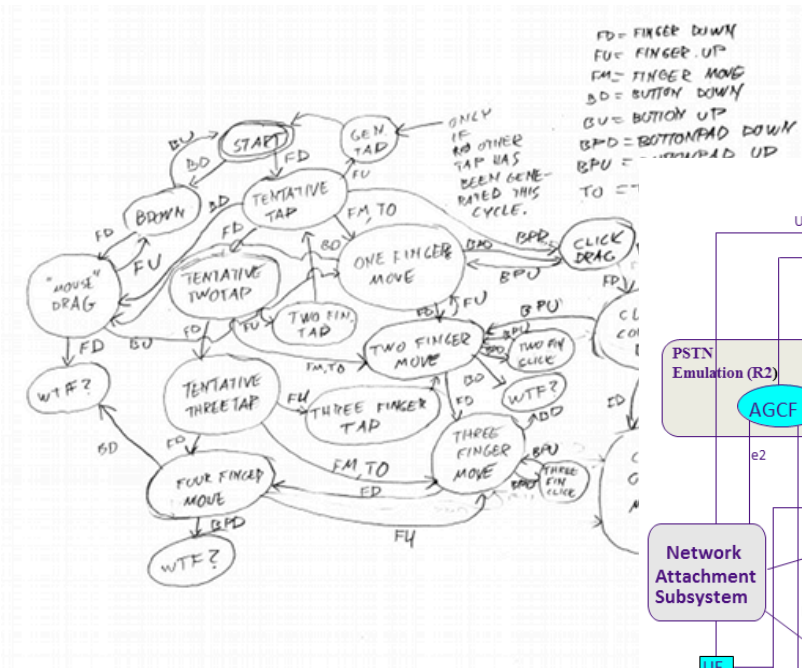 FD = FINGER DOWN
FU = FINGER UP
FM = FINGER MOVE
BD = BUTTON DOWN
BU = BUTTON UP
BPD = BUTTONPAD DOWN
BPU = UP
TO =
ONLY
IF
NO OTHER
TAP HAS
BEEN GENE-
RATED THIS
CYCLE.
START
GEN.
TAP
BU
BD
FD
FU
BDOWN
TENTATIVE
TAP
BD
FD
FM, TO
FD
FU
BD
BPD
BPD
BPU
CLICK
DRAG
FD
"MOUSE"
DRAG
TENTATIVE
TWOTAP
ONE FINGER
MOVE
BU
FD
FU
TWO FIN.
TAP
FD
FU
BPU
FD
FM, TO
TWO FINGER
MOVE
BPU
BPD
TWO FIN
CLICK
WTF?
BD
WTF?
FD
TENTATIVE
THREETAP
FU
THREE FINGER
TAP
BD
BD
FD
FM, TO
THREE
FINGER
MOVE
BPU
BPD
THREE
FIN
CLICK
FOUR FINGER
MOVE
FD
FU
BPD
WTF?
PSTN
Emulation (R2)
AGCF
e2
Network
Attachment
Subsystem